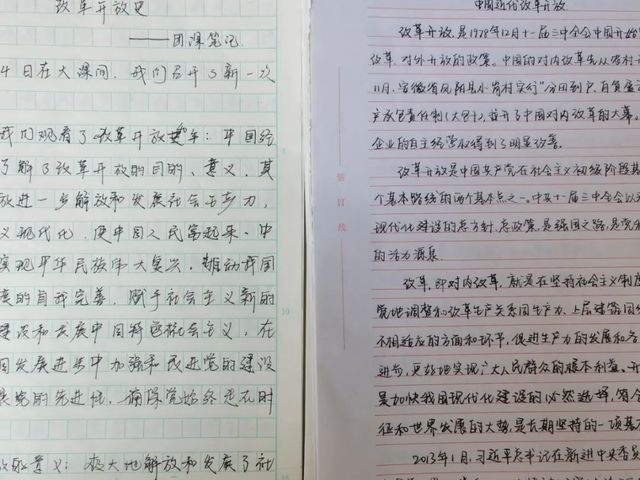 改革开放史
——团课笔记
4日在大课间，我们召开了新一次
我们观看了改革开放
了解了改革开放的目的、意义，其
放进一步解放和发展社会生产力，
义现代化，使中国人民富起来，中
实现中华民族伟大复兴，推动我国
度的自我完善，赋予社会主义新的
建设和发展中国特色社会主义，在
国发展进步中加强和改进党的建设
党的先进性，确保党始终走在时
意义：极大地解放和发展了社
10
中国近代改革开放
改革开放，是1978年12月十一届三中全会中国开始
改革，对外开放的政策。中国的对内改革先从农村
11月，安徽省凤阳县小岗村实行“分田到户，自负盈
产承包责任制（大包干），拉开了中国对内改革的大幕。
企业的自主经营权得到了明显改善。
改革开放是中国共产党在社会主义初级阶段基
个基本路线的两个基本点之一。中共十一届三中全会以
现代化建设的总方针、总政策，是强国之路，是党
的活力源泉。
改革，即对内改革，就是在坚持社会主义制度
觉地调整和改革生产关系同生产力、上层建筑同
不相适应的方面和环节，促进生产力的发展和各
进步，更好地实现广大人民群众的根本利益。开
是加快我国现代化建设的必然选择，符合
征和世界发展的大势，是长期坚持的一项基
2013年1月，习近平总书记在新进中央委员
装
订
线